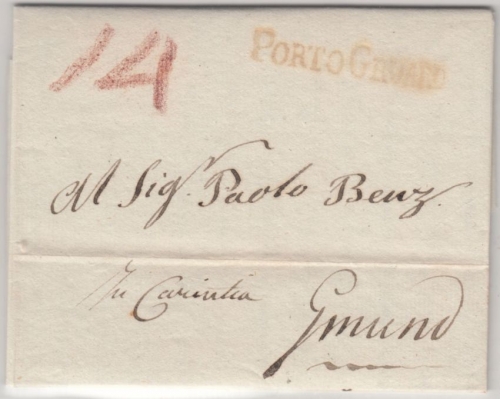 14
PORTO GRUARO
Al Sigr. Paolo Benz.
In Carintia
Gmund